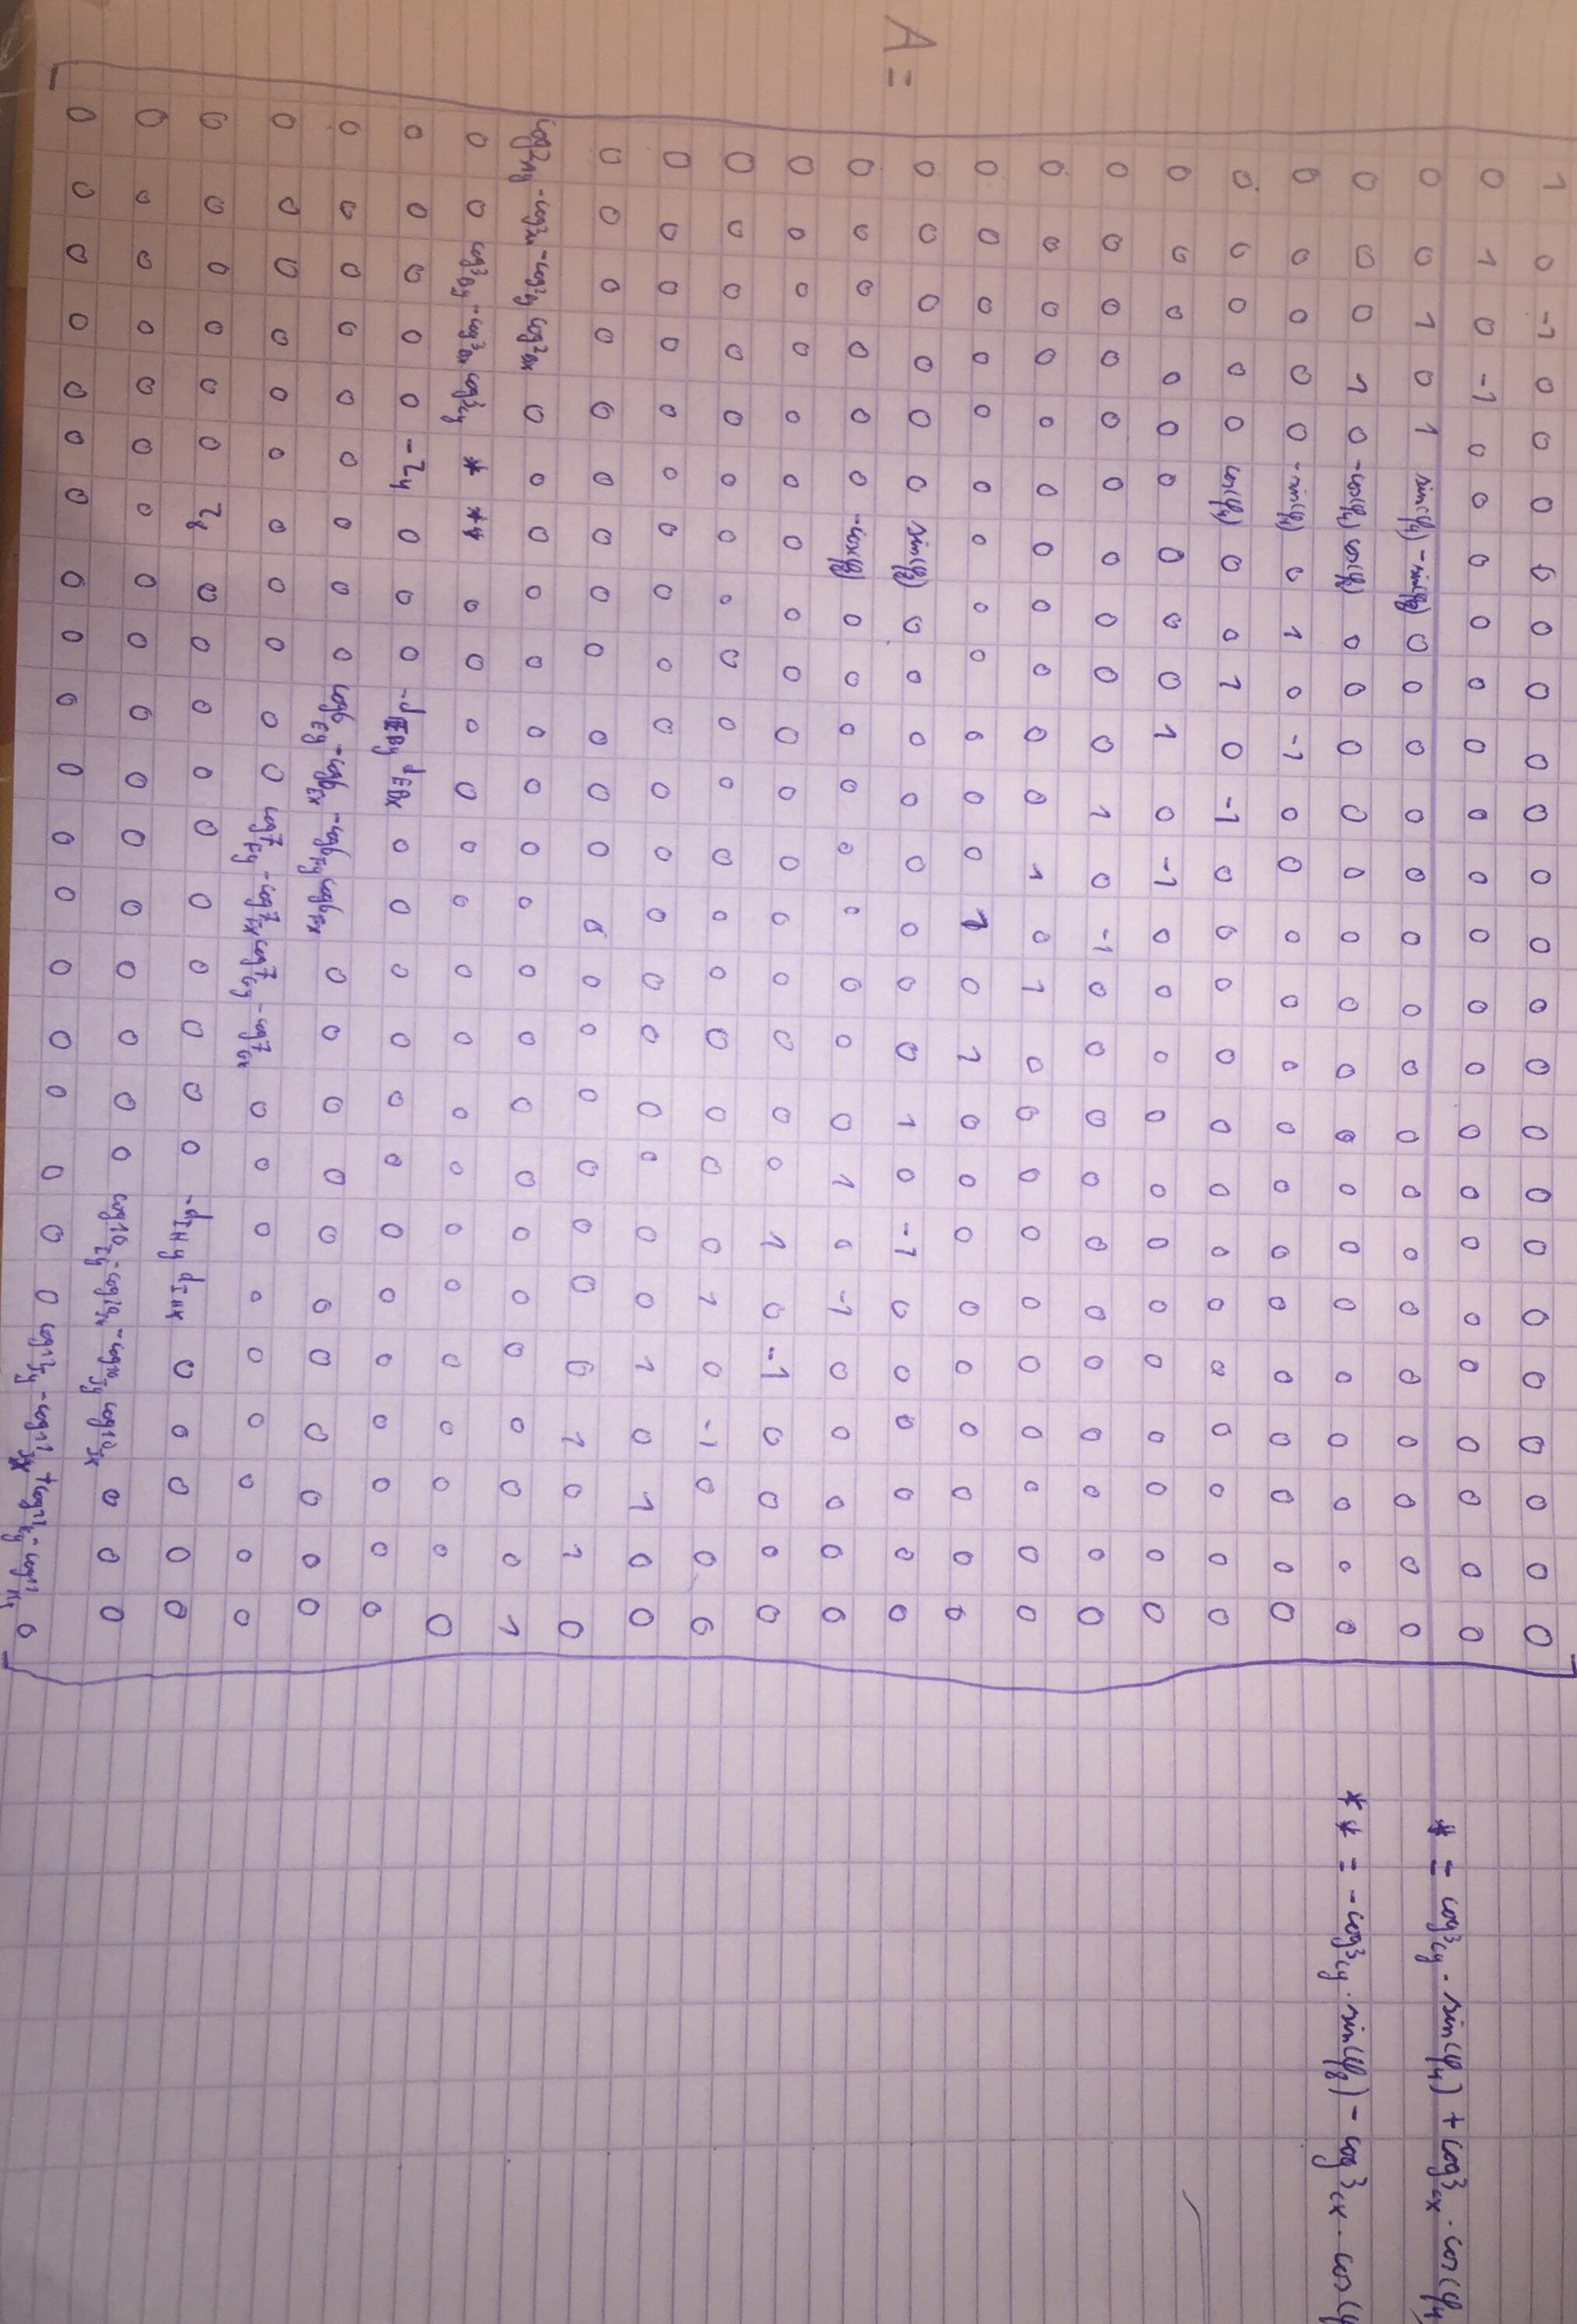 A =
1 0 -1 0 0 0 0 0 0 0 0 0 0 0 0 0 0 0 0 0 0 0 0 0
0 1 0 -1 0 0 0 0 0 0 0 0 0 0 0 0 0 0 0 0 0 0 0 0
0 0 1 0 1 sin(φ4) -sin(φ8) 0 0 0 0 0 0 0 0 0 0 0 0 0 0 0 0 0
0 0 0 1 0 -cos(φ4) cos(φ8) 0 0 0 0 0 0 0 0 0 0 0 0 0 0 0 0 0
0 0 0 0 0 -sin(φ4) 0 1 0 -1 0 0 0 0 0 0 0 0 0 0 0 0 0 0
0 0 0 0 0 cos(φ4) 0 0 1 0 -1 0 0 0 0 0 0 0 0 0 0 0 0 0
0 0 0 0 0 0 0 0 0 1 0 -1 0 0 0 0 0 0 0 0 0 0 0 0
0 0 0 0 0 0 0 0 0 0 1 0 -1 0 0 0 0 0 0 0 0 0 0 0
0 0 0 0 0 0 0 0 0 0 0 1 0 1 0 0 0 0 0 0 0 0 0 0
0 0 0 0 0 0 0 0 0 0 0 0 1 0 1 0 0 0 0 0 0 0 0 0
0 0 0 0 0 0 sin(φ8) 0 0 0 0 0 0 0 0 1 0 -1 0 0 0 0 0 0
0 0 0 0 0 0 -cos(φ8) 0 0 0 0 0 0 0 0 0 1 0 -1 0 0 0 0 0
0 0 0 0 0 0 0 0 0 0 0 0 0 0 0 0 0 1 0 -1 0 0 0 0
0 0 0 0 0 0 0 0 0 0 0 0 0 0 0 0 0 0 1 0 -1 0 0 0
0 0 0 0 0 0 0 0 0 0 0 0 0 0 0 0 0 0 0 1 0 1 0 0
0 0 0 0 0 0 0 0 0 0 0 0 0 0 0 0 0 0 0 0 1 0 1 0
cog2Ay -cog2Ax -cog2By cog2Bx 0 0 0 0 0 0 0 0 0 0 0 0 0 0 0 0 0 0 0 1
0 0 cog3By -cog3Bx cog3Cy * ** 0 0 0 0 0 0 0 0 0 0 0 0 0 0 0 0 0
0 0 0 0 0 -z4 0 0 0 -dEBy dEBx 0 0 0 0 0 0 0 0 0 0 0 0 0
0 0 0 0 0 0 0 0 0 cog6Ey -cog6Ex -cog6Fy cog6Fx 0 0 0 0 0 0 0 0 0 0 0
0 0 0 0 0 0 0 0 0 0 0 cog7Fy -cog7Fx cog7Gy -cog7Gx 0 0 0 0 0 0 0 0 0
0 0 0 0 0 0 z8 0 0 0 0 0 0 0 0 0 0 -dIHy dIHx 0 0 0 0 0
0 0 0 0 0 0 0 0 0 0 0 0 0 0 0 0 0 cog10Iy -cog10Ix -cog10Jy cog10Jx 0 0 0
0 0 0 0 0 0 0 0 0 0 0 0 0 0 0 0 0 0 0 cog12Jy -cog12Jx +cog12Ky -cog12Kx 0
* = cog3Cy · sin(φ4) + cog3Cx · cos(φ4)
** = -cog3Cy · sin(φ8) - cog3Cx · cos(φ